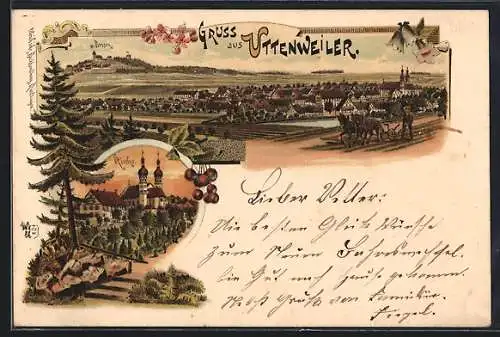 GRUSS
AUS UTTENWEILER.
Bussen
Kirche
Lieber Vetter:
Die besten Glück Wünsche
zum Neuen Jahreswechsel.
bin Gut nach Hause gekommen.
Nebst Gruß von Familie